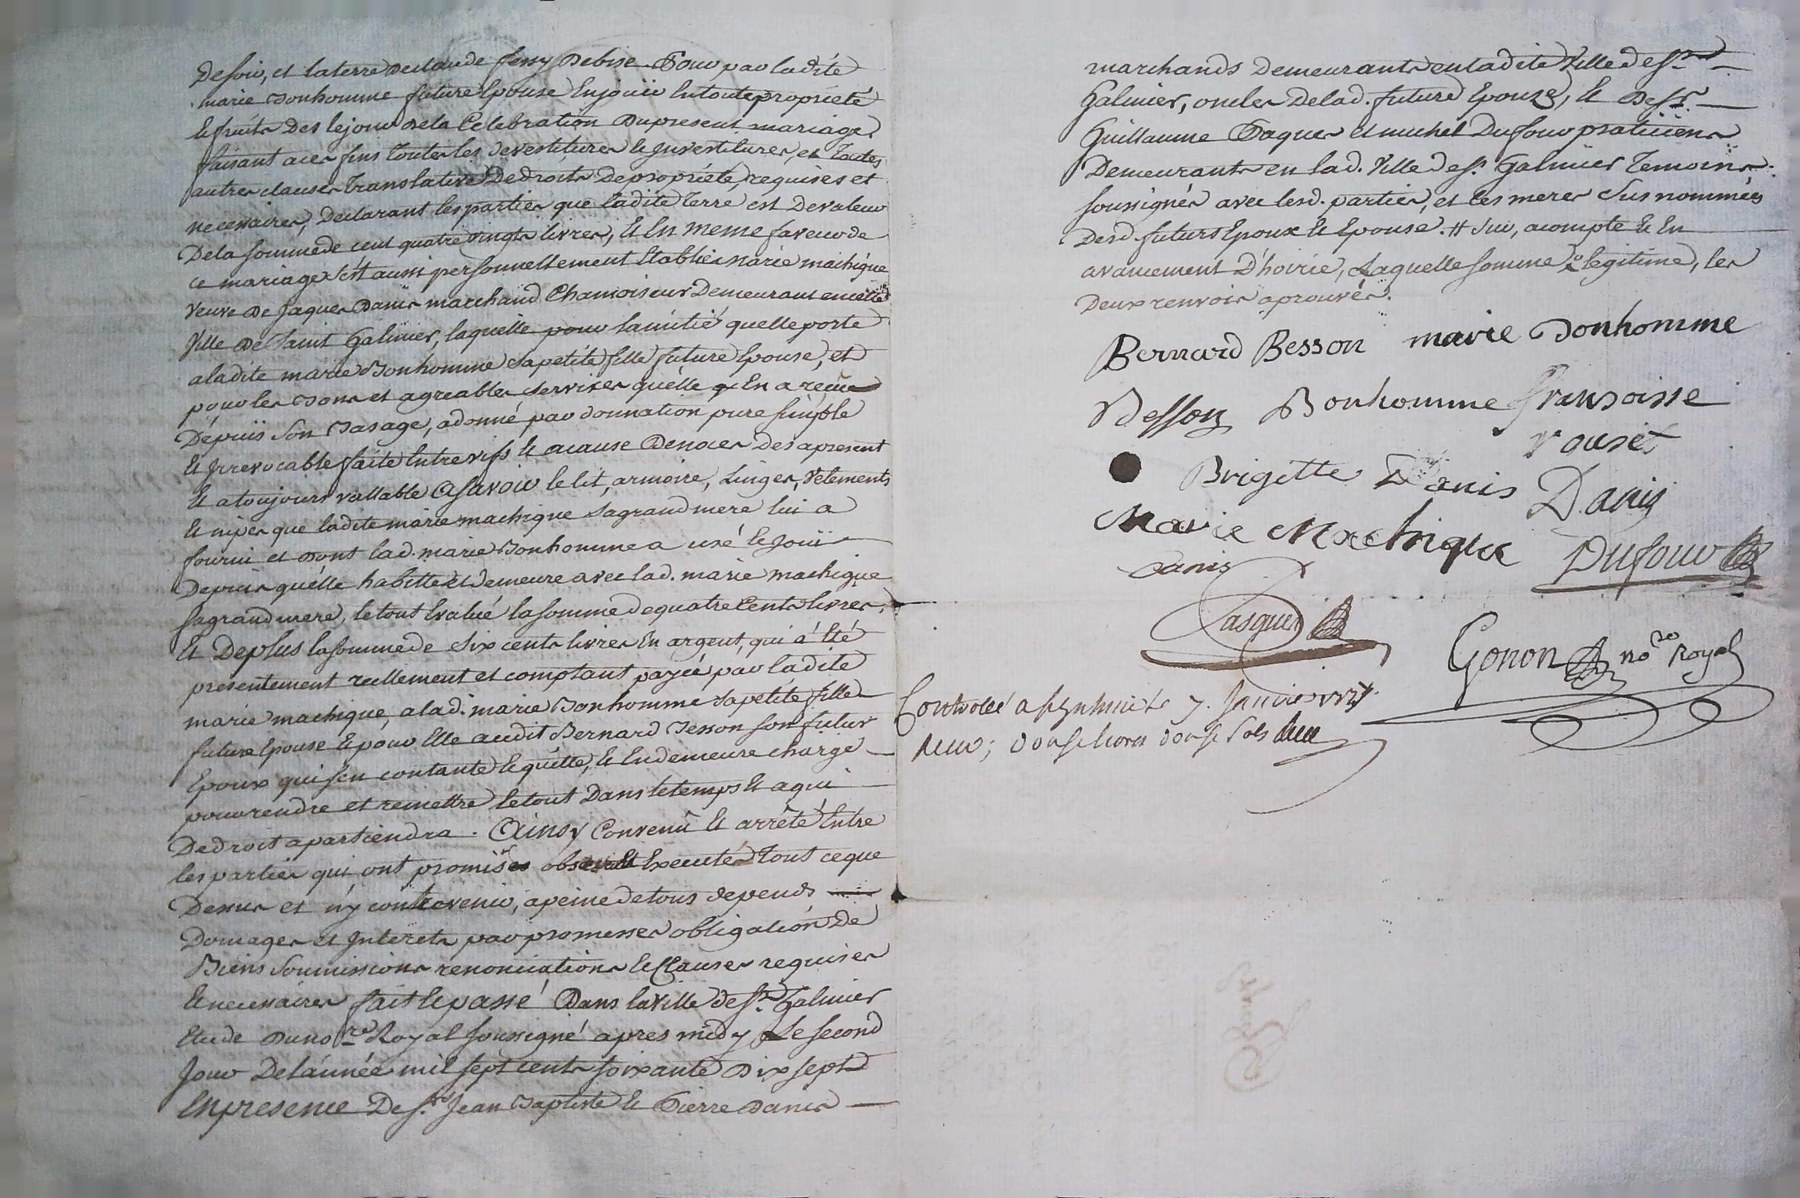 de soir, et la terre de Claude fessy de bise. Pour par ladité
marie Bonhomme future Epouse En jouir En toute propriété
& fruits des le jour de la Celebration du present mariage,
faisant a ces fins toutes les devestitures & Investitures, et toutes
autres clauses translative de droits de propriété, requises et
necessaires, declarant les parties que ladite Terre est de valeur
De la somme de cent quatre vingts livres, & En meme faveur de
ce mariage s'est aussi personnellement Etablie marie machique
veuve de Jaques Danis marchand Chamoiseur Demeurant en cette
Ville De Saint Galmier, laquelle pour l'amitié quelle porte
a ladite marie Bonhomme sa petite fille future Epouse, et
pour les bons et agreables services qu'elle En a reçue
Depuis son bas age, a donné par donnation pure simple
& Irrevocable faite Entre vifs & a cause De noces Des apresent
& a toujours vallable A Savoir le lit, armoire, Linges, Vetements
& nipes que ladite marie machique sa grand mere lui a
fourni et dont lad. marie Bonhomme a usé & Joüi
Depuis quélle habitte et demeure avec lad. marie machique
sa grand mere, le tout Evalué la somme de quatre Cents livres,
Et De plus la somme de six cents livres En argent, qui a Eté
presentement reellement et comptant payée par ladite
marie machique, a lad. marie Bonhomme sa petite fille
future Epouse & pour Elle audit Bernard Besson son futur
Epoux qui s'en contante & quitte, & En demeure chargé
pour rendre et remettre le tout Dans le temps & a qui
De droit apartiendra. Ainsy Convenu & arrêté Entre
les parties qui ont promises observer & Executer Tout ce que
Dessus et n'y contrevenir, a peine de tous depends
Domages et Interets par promesses obligation De
Biens soumissions renonciations & Clauses requises
& necessaires fait & passé Dans la Ville de St. Galmier
Etude Du nore. Royal soussigné apres midy Le second
Jour De l'année mil sept cents soixante Dix sept
En presence De srs. Jean Baptiste & Pierre Danis
marchands Demeurants en ladite Ville de St.
Galmier, oncles De lad. future Epouse, & De srs.
Guillaume Paquer et michel Dufour praticiens
Demeurants en lad. Ville de St. Galmier Temoins
soussignés avec lesd. parties, et les meres sus nommées
Desd. futurs Epoux & Epouse. # sur, acompte & En
avancement D'hoirie, Laquelle somme & legitime, les
Deux renvois aprouvés.
Bernard Besson marie Bonhomme
Besson Bonhomme fransoisse
rouset
Brigitte Danis Danis
Marie Machique Dufour
Danis
Pasquer
Gonon nore Royal
Controlé a St Galmier le 7. Janvier 1777
Reçu; douse livres douse sols